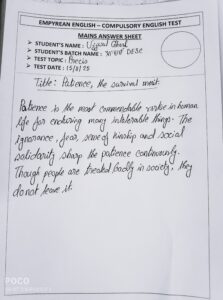 EMPYREAN ENGLISH – COMPULSORY ENGLISH TEST
MAINS ANSWER SHEET
➤ STUDENT'S NAME : Ghosh
➤ STUDENT'S BATCH NAME : DESC
➤ TEST TOPIC : Precis
➤ TEST DATE : 15/02/25
Title: Patience, the survival merit
Patience is the most commendable virtue in human
life for enduring many intolerable things. The
ignorance, fear, sense of kinship and social
solidarity sharp the patience continuously.
Though people are treated badly in society, they
do not leave it.
POCO